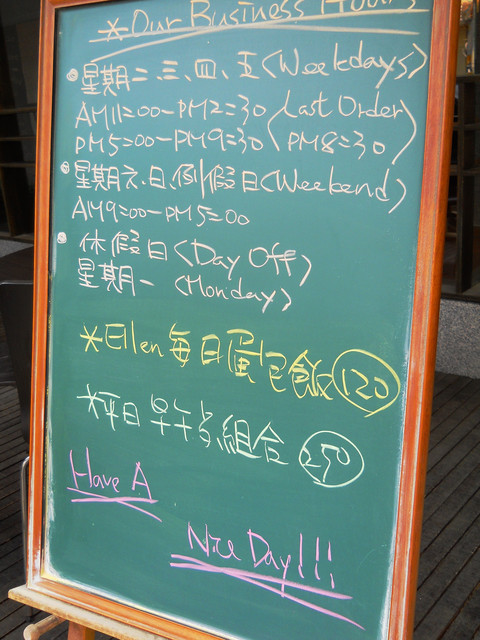 *Our Business Hours
•星期二、三、四、五<Weekdays>
AM11=00-PM2=30<Last Order>
PM5=00-PM9=30<PM8=30>
•星期六、日、例假日<Weekend>
AM9=00-PM5=00
•休假日<Day Off>
星期一<Monday>
*Ellen每日蛋包飯 120
*平日早午餐組合 250
Have A
Nice Day!!!